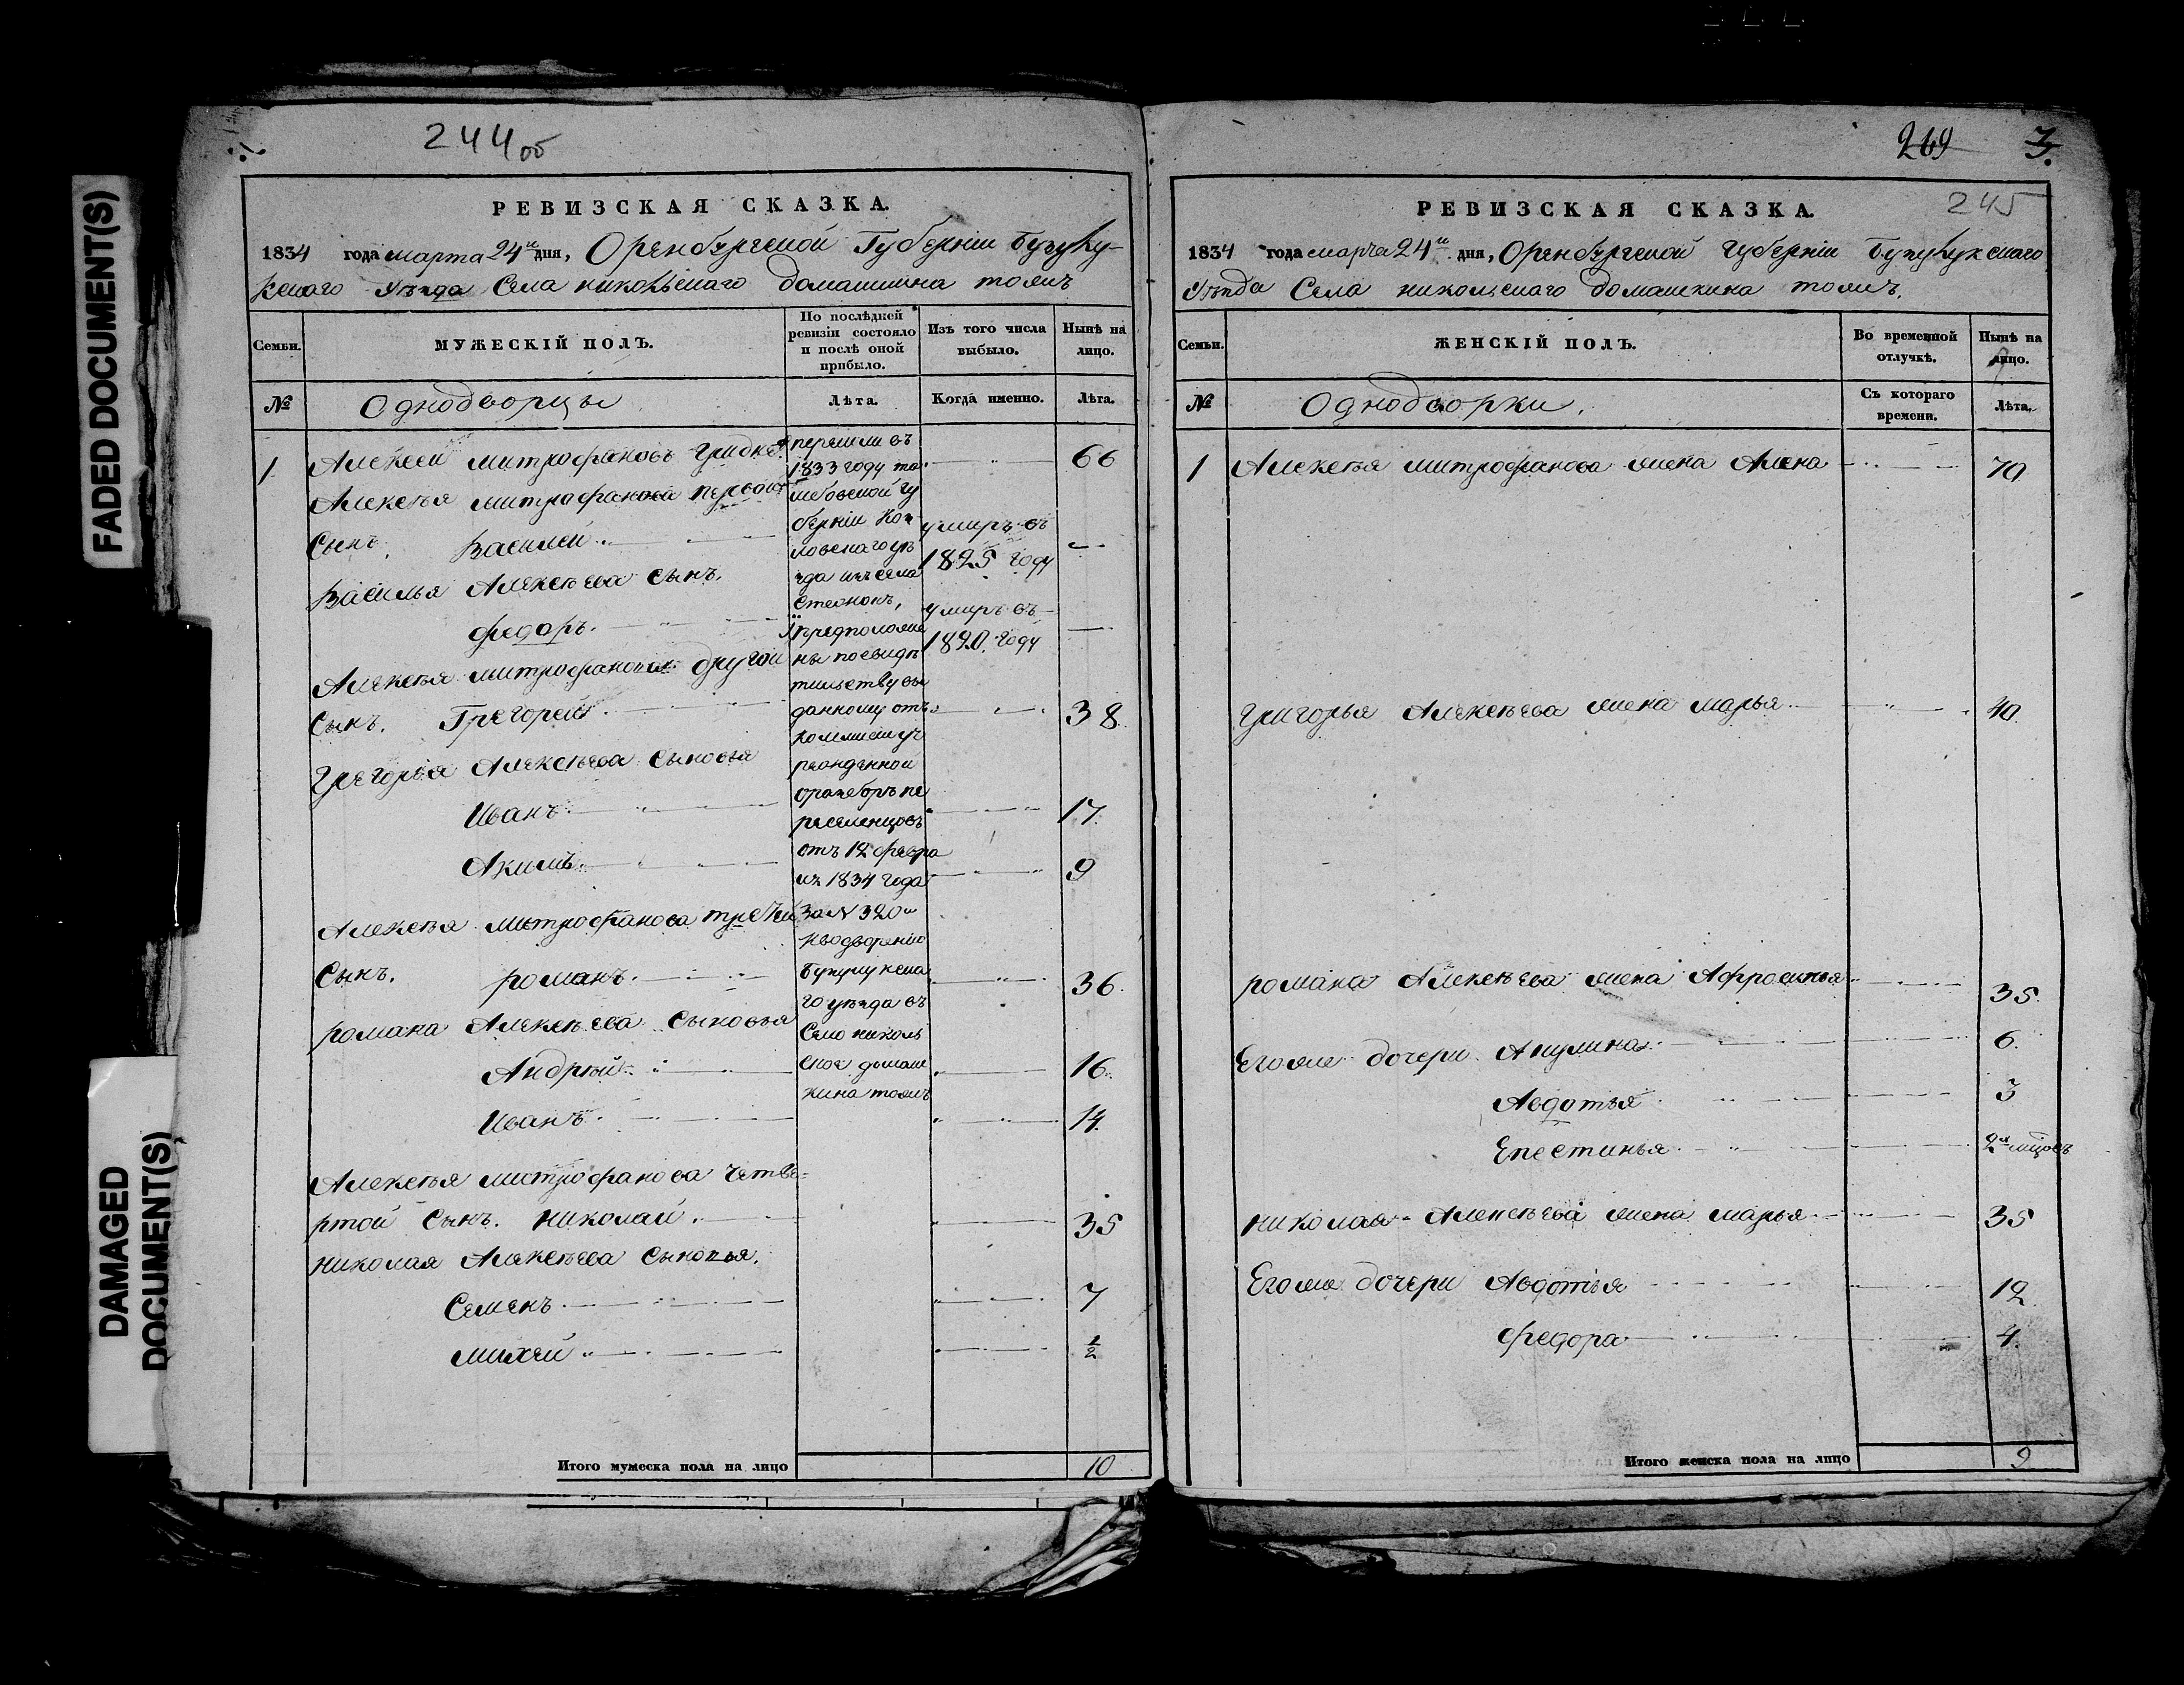 FADED DOCUMENT(S)
DAMAGED
DOCUMENT(S)
244 об
РЕВИЗСКАЯ СКАЗКА.
1834 года марта 24го дня, Оренбургской Губерніи Бузулу-
кскаго Уѣзда Села никольскаго домашкина тожъ
Семьи.
МУЖЕСКІЙ ПОЛЪ.
По послѣдней
ревизіи состояло
и послѣ оной
прибыло.
Изъ того числа
выбыло.
Нынѣ на
лицо.
№
Однодворцы
Лѣта.
Когда именно.
Лѣта.
1 Алексей митрофановъ 66
Алексѣя митрофанова первой
Сынъ Василей
умиръ въ
1825 году
Василья Алексѣева сынъ.
федоръ.
умиръ въ
1820. году
Алексѣя митрофанова другой
Сынъ. Грегорей 38.
Грегорья Алексѣева сыновья
Иванъ 17.
Акимъ 9
Алексѣя митрофанова третей
Сынъ. романъ. 36.
романа Алексѣева сыновья
Андрей 16.
Иванъ 14.
Алексѣя митрофанова четве-
ртой сынъ. николай. 35
николая Алексѣева сыновья.
Семенъ 7
михей ½
перешли въ
1833 году та
мбовской гу
берніи Коз
ловскаго уѣ
зда изъ села
предположе
ны по свидѣ
тильству вы
данному отъ
комисіи уч
режденной
переселенцовъ
отъ 12 февра
ля 1834 года
за N 320м
къ водворенію
Бузулукска
го уѣзда въ
Село николь
ское домаш
кина тожъ
Итого мужеска пола на лицо 10
269 3.
245
РЕВИЗСКАЯ СКАЗКА.
1834 года марта 24го дня, Оренбургской Губерніи Бузулукскаго
Уѣзда Села никольскаго домашкина тожъ.
Семьи.
ЖЕНСКІЙ ПОЛЪ.
Во временной
отлучкѣ.
Нынѣ на
лицо.
№
Однодворки.
Съ котораго
времени.
Лѣта.
1 Алексѣя митрофанова жена Алена 70
Григорья Алексѣева жена марья 40.
романа Алексѣева жена Афросинья 35.
Егоже дочери Акулина 6.
Авдотья 3
Епестинья
николая Алексѣева жена марья 35
Егоже дочери Авдотья 12.
федора 4.
Итого женска пола на лицо 9